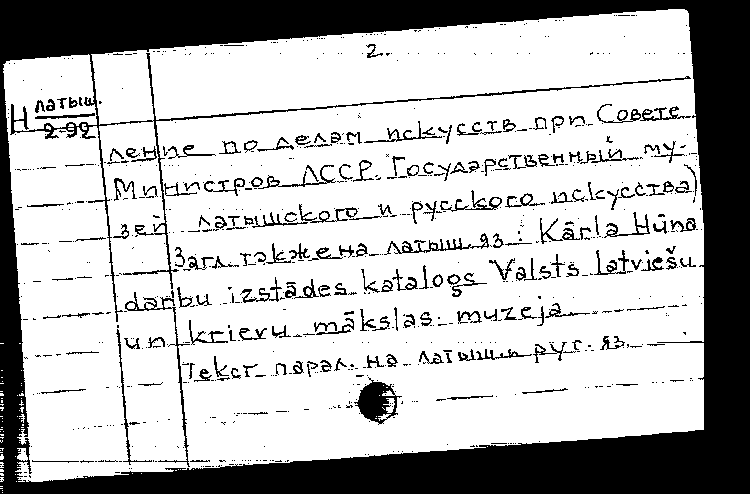 2.
Н латыш.
2-92
ление по делам искусств при Совете
Министров ЛССР. Государственный му-
зей латышского и русского искусства)
Загл. также на латыш. яз: Kārļa Hūna
darbu izstādes katalogs Valsts latviešu
un krievu mākslas muzeja
Текст парал. на латыш. и рус. яз.